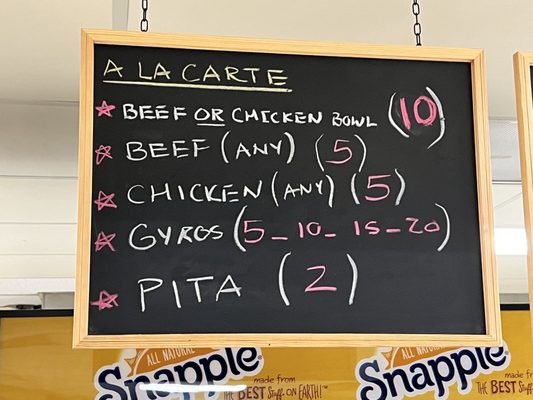 A LA CARTE
☆ BEEF OR CHICKEN BOWL (10)
☆ BEEF (ANY) (5)
☆ CHICKEN (ANY) (5)
☆ GYROS (5 - 10 - 15 - 20)
☆ PITA (2)
ALL NATURAL
Snapple
made from
THE BEST Stuff ON EARTH!™
ALL NATURAL
Snapple
made from
THE BEST Stuff